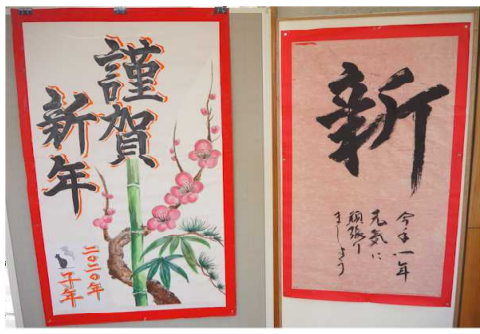 謹賀
新年
二〇二〇年
子年
新
今年一年
元気に
頑張り
ましょう